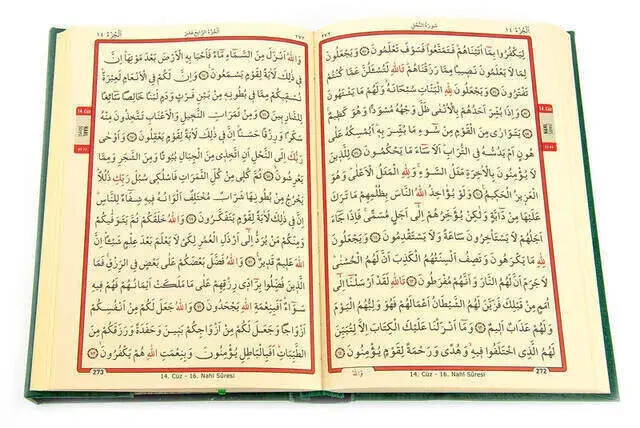 اَلْجُزْءُ ١٤
سُورَةُ النَّحْلِ
٢٧٢
لِيَكْفُرُوا بِمَا اٰتَيْنَاهُمْ فَتَمَتَّعُوا فَسَوْفَ تَعْلَمُونَ ﴿٥٥﴾ وَيَجْعَلُونَ
لِمَا لَا يَعْلَمُونَ نَصِيبًا مِمَّا رَزَقْنَاهُمْ تَاللّٰهِ لَتُسْـَٔلُنَّ عَمَّا كُنْتُمْ
تَفْتَرُونَ ﴿٥٦﴾ وَيَجْعَلُونَ لِلّٰهِ الْبَنَاتِ سُبْحَانَهُ وَلَهُمْ مَا يَشْتَهُونَ
﴿٥٧﴾ وَاِذَا بُشِّرَ اَحَدُهُمْ بِالْاُنْثٰى ظَلَّ وَجْهُهُ مُسْوَدًّا وَهُوَ كَظِيمٌ
﴿٥٨﴾ يَتَوَارٰى مِنَ الْقَوْمِ مِنْ سُٓوءِ مَا بُشِّرَ بِهِ اَيُمْسِكُهُ عَلٰى
هُونٍ اَمْ يَدُسُّهُ فِي التُّرَابِ اَلَا سَٓاءَ مَا يَحْكُمُونَ ﴿٥٩﴾ لِلَّذِينَ
لَا يُؤْمِنُونَ بِالْاٰخِرَةِ مَثَلُ السَّوْءِ وَلِلّٰهِ الْمَثَلُ الْاَعْلٰى وَهُوَ
الْعَزِيزُ الْحَكِيمُ ﴿٦٠﴾ وَلَوْ يُؤَاخِذُ اللّٰهُ النَّاسَ بِظُلْمِهِمْ مَا تَرَكَ
عَلَيْهَا مِنْ دَٓابَّةٍ وَلٰكِنْ يُؤَخِّرُهُمْ اِلٰٓى اَجَلٍ مُسَمًّى فَاِذَا جَٓاءَ
اَجَلُهُمْ لَا يَسْتَأْخِرُونَ سَاعَةً وَلَا يَسْتَقْدِمُونَ ﴿٦١﴾ وَيَجْعَلُونَ
لِلّٰهِ مَا يَكْرَهُونَ وَتَصِفُ اَلْسِنَتُهُمُ الْكَذِبَ اَنَّ لَهُمُ الْحُسْنٰى
لَا جَرَمَ اَنَّ لَهُمُ النَّارَ وَاَنَّهُمْ مُفْرَطُونَ ﴿٦٢﴾ تَاللّٰهِ لَقَدْ اَرْسَلْنَٓا اِلٰٓى
اُمَمٍ مِنْ قَبْلِكَ فَزَيَّنَ لَهُمُ الشَّيْطَانُ اَعْمَالَهُمْ فَهُوَ وَلِيُّهُمُ الْيَوْمَ
وَلَهُمْ عَذَابٌ اَلِيمٌ ﴿٦٣﴾ وَمَٓا اَنْزَلْنَا عَلَيْكَ الْكِتَابَ اِلَّا لِتُبَيِّنَ
لَهُمُ الَّذِي اخْتَلَفُوا فِيهِ وَهُدًى وَرَحْمَةً لِقَوْمٍ يُؤْمِنُونَ ﴿٦٤﴾
وَاللّٰهُ
272
14. Cüz
NAHL
اَلْجُزْءُ الرَّابِعَ عَشَرَ
٢٧٣
اَلْجُزْءُ ١٤
وَاللّٰهُ اَنْزَلَ مِنَ السَّمَٓاءِ مَٓاءً فَاَحْيَا بِهِ الْاَرْضَ بَعْدَ مَوْتِهَا اِنَّ
فِي ذٰلِكَ لَاٰيَةً لِقَوْمٍ يَسْمَعُونَ ﴿٦٥﴾ وَاِنَّ لَكُمْ فِي الْاَنْعَامِ لَعِبْرَةً
نُسْقِيكُمْ مِمَّا فِي بُطُونِهِ مِنْ بَيْنِ فَرْثٍ وَدَمٍ لَبَنًا خَالِصًا سَٓائِغًا
لِلشَّارِبِينَ ﴿٦٦﴾ وَمِنْ ثَمَرَاتِ النَّخِيلِ وَالْاَعْنَابِ تَتَّخِذُونَ مِنْهُ
سَكَرًا وَرِزْقًا حَسَنًا اِنَّ فِي ذٰلِكَ لَاٰيَةً لِقَوْمٍ يَعْقِلُونَ ﴿٦٧﴾ وَاَوْحٰى
رَبُّكَ اِلَى النَّحْلِ اَنِ اتَّخِذِي مِنَ الْجِبَالِ بُيُوتًا وَمِنَ الشَّجَرِ وَمِمَّا
يَعْرِشُونَ ﴿٦٨﴾ ثُمَّ كُلِي مِنْ كُلِّ الثَّمَرَاتِ فَاسْلُكِي سُبُلَ رَبِّكِ ذُلُلًا
يَخْرُجُ مِنْ بُطُونِهَا شَرَابٌ مُخْتَلِفٌ اَلْوَانُهُ فِيهِ شِفَٓاءٌ لِلنَّاسِ
اِنَّ فِي ذٰلِكَ لَاٰيَةً لِقَوْمٍ يَتَفَكَّرُونَ ﴿٦٩﴾ وَاللّٰهُ خَلَقَكُمْ ثُمَّ يَتَوَفّٰيكُمْ
وَمِنْكُمْ مَنْ يُرَدُّ اِلٰٓى اَرْذَلِ الْعُمُرِ لِكَيْ لَا يَعْلَمَ بَعْدَ عِلْمٍ شَيْـًٔا اِنَّ
اللّٰهَ عَلِيمٌ قَدِيرٌ ﴿٧٠﴾ وَاللّٰهُ فَضَّلَ بَعْضَكُمْ عَلٰى بَعْضٍ فِي الرِّزْقِ فَمَا
الَّذِينَ فُضِّلُوا بِرَٓادِّي رِزْقِهِمْ عَلٰى مَا مَلَكَتْ اَيْمَانُهُمْ فَهُمْ فِيهِ
سَوَٓاءٌ اَفَبِنِعْمَةِ اللّٰهِ يَجْحَدُونَ ﴿٧١﴾ وَاللّٰهُ جَعَلَ لَكُمْ مِنْ اَنْفُسِكُمْ
اَزْوَاجًا وَجَعَلَ لَكُمْ مِنْ اَزْوَاجِكُمْ بَنِينَ وَحَفَدَةً وَرَزَقَكُمْ مِنَ
الطَّيِّبَاتِ اَفَبِالْبَاطِلِ يُؤْمِنُونَ وَبِنِعْمَتِ اللّٰهِ هُمْ يَكْفُرُونَ ﴿٧٢﴾
273
14. Cüz - 16. Nahl Sûresi
14. Cüz - 16. Nahl Sûresi
14. Cüz
NAHL